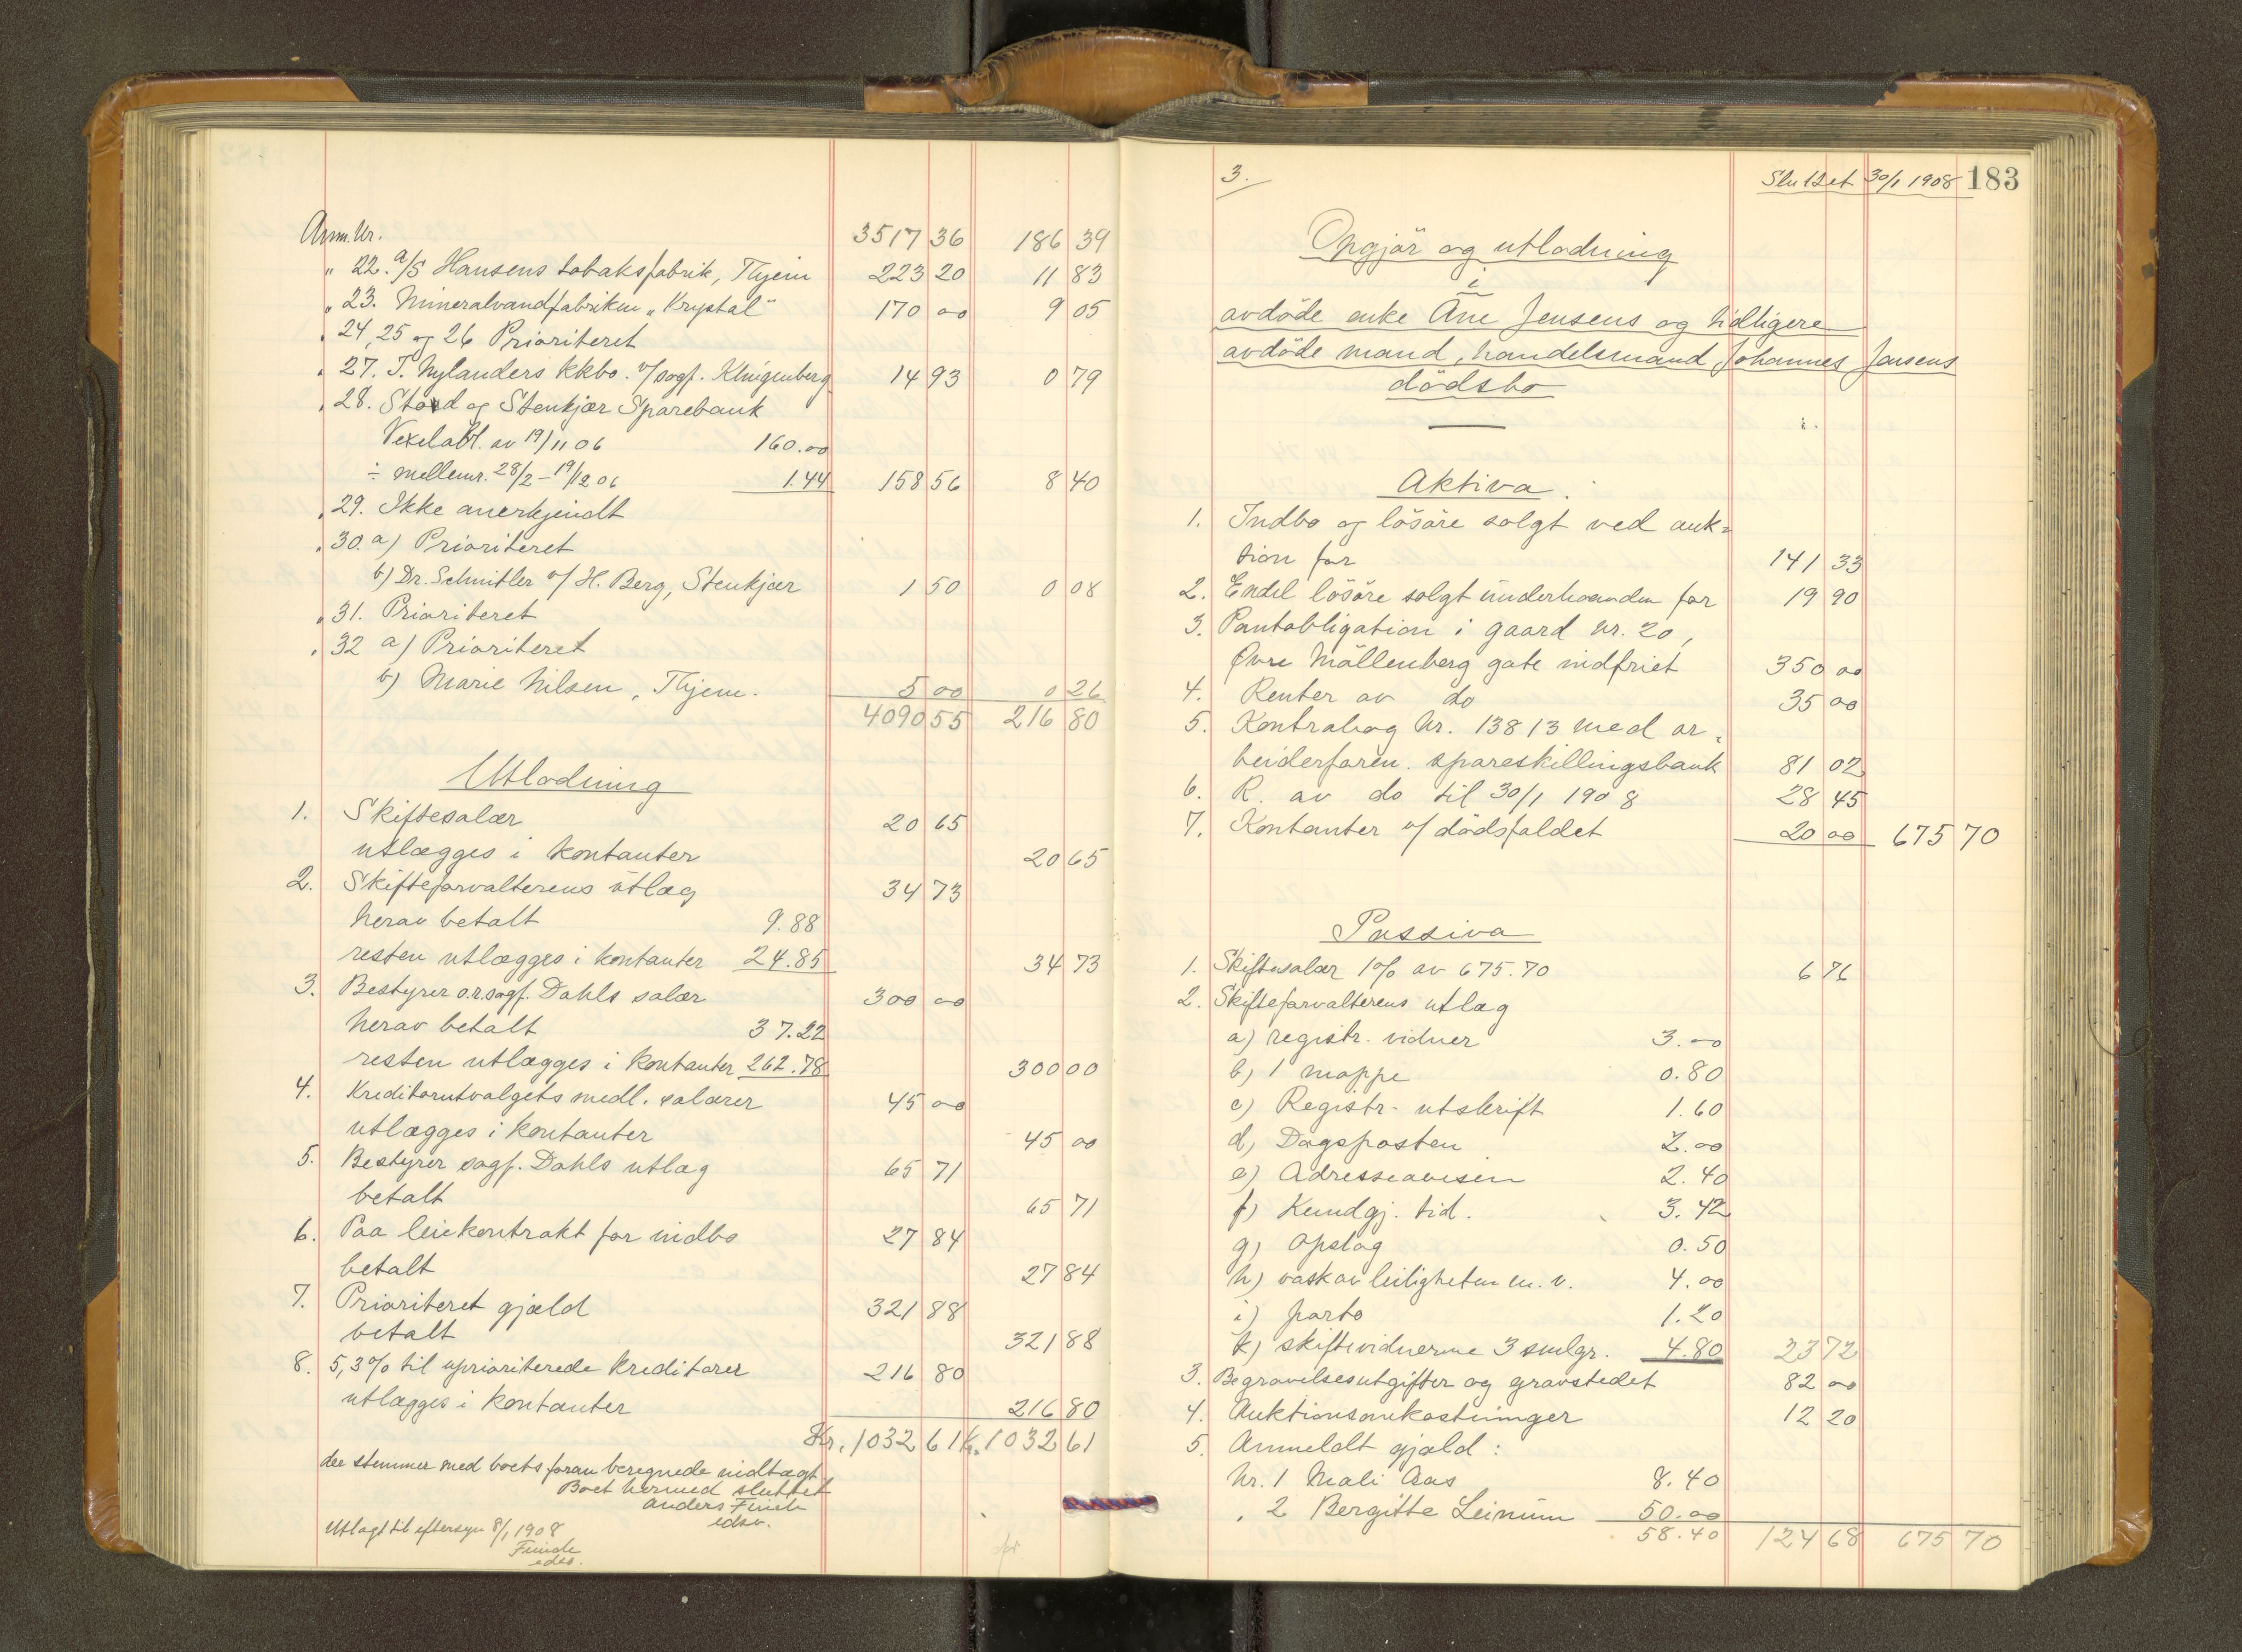 Anm. Nr. 3517 36 186 39
" 22. A/S Hansens tobaksfabrik, Thjem 223 20 11 83
" 23. Mineralvandfabriken "Krystal" 170 00 9 05
" 24, 25 og 26 Prioriteret
" 27. T. Nylanders kkbo. v/sagf. Klingenberg 14 93 0 79
" 28. Stod og Stenkjær Sparebank
Vexelobl. av 19/11 06 160.00
÷ mellemr. 28/2 – 19/12 06 1.44 158 56 8 40
" 29. Ikke anerkjendt
" 30. a) Prioriteret
b) Dr. Schnitler v/ H. Berg, Stenkjær 1 50 0 08
" 31. Prioriteret
" 32 a) Prioriteret
b) Marie Nilsen, Thjem. 5 00 0 26
4090 55 216 80
Utlodning
1. Skiftesalær 20 65
utlægges i kontanter 20 65
2. Skifteforvalterens utlæg 34 73
herav betalt 9.88
resten utlægges i kontanter 24.85 34 73
3. Bestyrer o.r.sagf. Dahls salær 300 00
herav betalt 37.22
resten utlægges i kontanter 262.78 300 00
4. Kreditorutvalgets medl. salærer 45 00
utlægges i kontanter 45 00
5. Bestyrer sagf. Dahls utlæg 65 71
betalt 65 71
6. Paa leiekontrakt for indbo 27 84
betalt 27 84
7. Prioriteret gjæld 321 88
betalt 321 88
8. 5,3% til uprioriterede kreditorer 216 80
utlægges i kontanter 216 80
Kr. 1032 61 Kr. 1032 61
der stemmer med boets foran beregnede indtægt.
Boet hermed sluttet
Anders
edsv.
Utlagt til eftersyn 8/1 1908
edsv.
3. Sluttet 30/1 1908 183
Opgjör og utlodning
i
avdöde enke Ane Jensens og tidligere
avdöde mand, handelsmand Johannes Jensens
dödsbo
Aktiva.
1. Indbo og lösöre solgt ved auk=
tion for 141 33
2. Endel lösöre solgt underhaanden for 19 90
3. Pantobligation i gaard nr. 20,
Øvre Möllenberg gate indfriet 350 00
4. Renter av do 35 00
5. Kontrabog Nr. 13813 med ar=
beiderforen. spareskillingsbank 81 02
6. R. av do til 30/1 1908 28 45
7. Kontanter v/ dödsfaldet 20 00 675 70
Passiva
1. Skiftesalær 1% av 675.70 6 76
2. Skifteforvalterens utlæg
a) registr. vidner 3.00
b) 1 mappe 0.80
c) Registr. utskrift 1.60
d) Dagsposten 2.00
e) Adresseavisen 2.40
f) Kundgj. tid. 3.42
g) opslag 0.50
h) vask av leiligheten m. v. 4.00
i) porto 1.20
k) skiftevidnerne 3 smlgr. 4.80 23 72
3. Begravelsesutgifter og gravstedet 82 00
4. Auktionsomkostninger 12 20
5. Anmeldt gjæld:
Nr. 1 Mali Aas 8.40
" 2 Bergitte Leinum 50.00
58.40 124 68 675 70